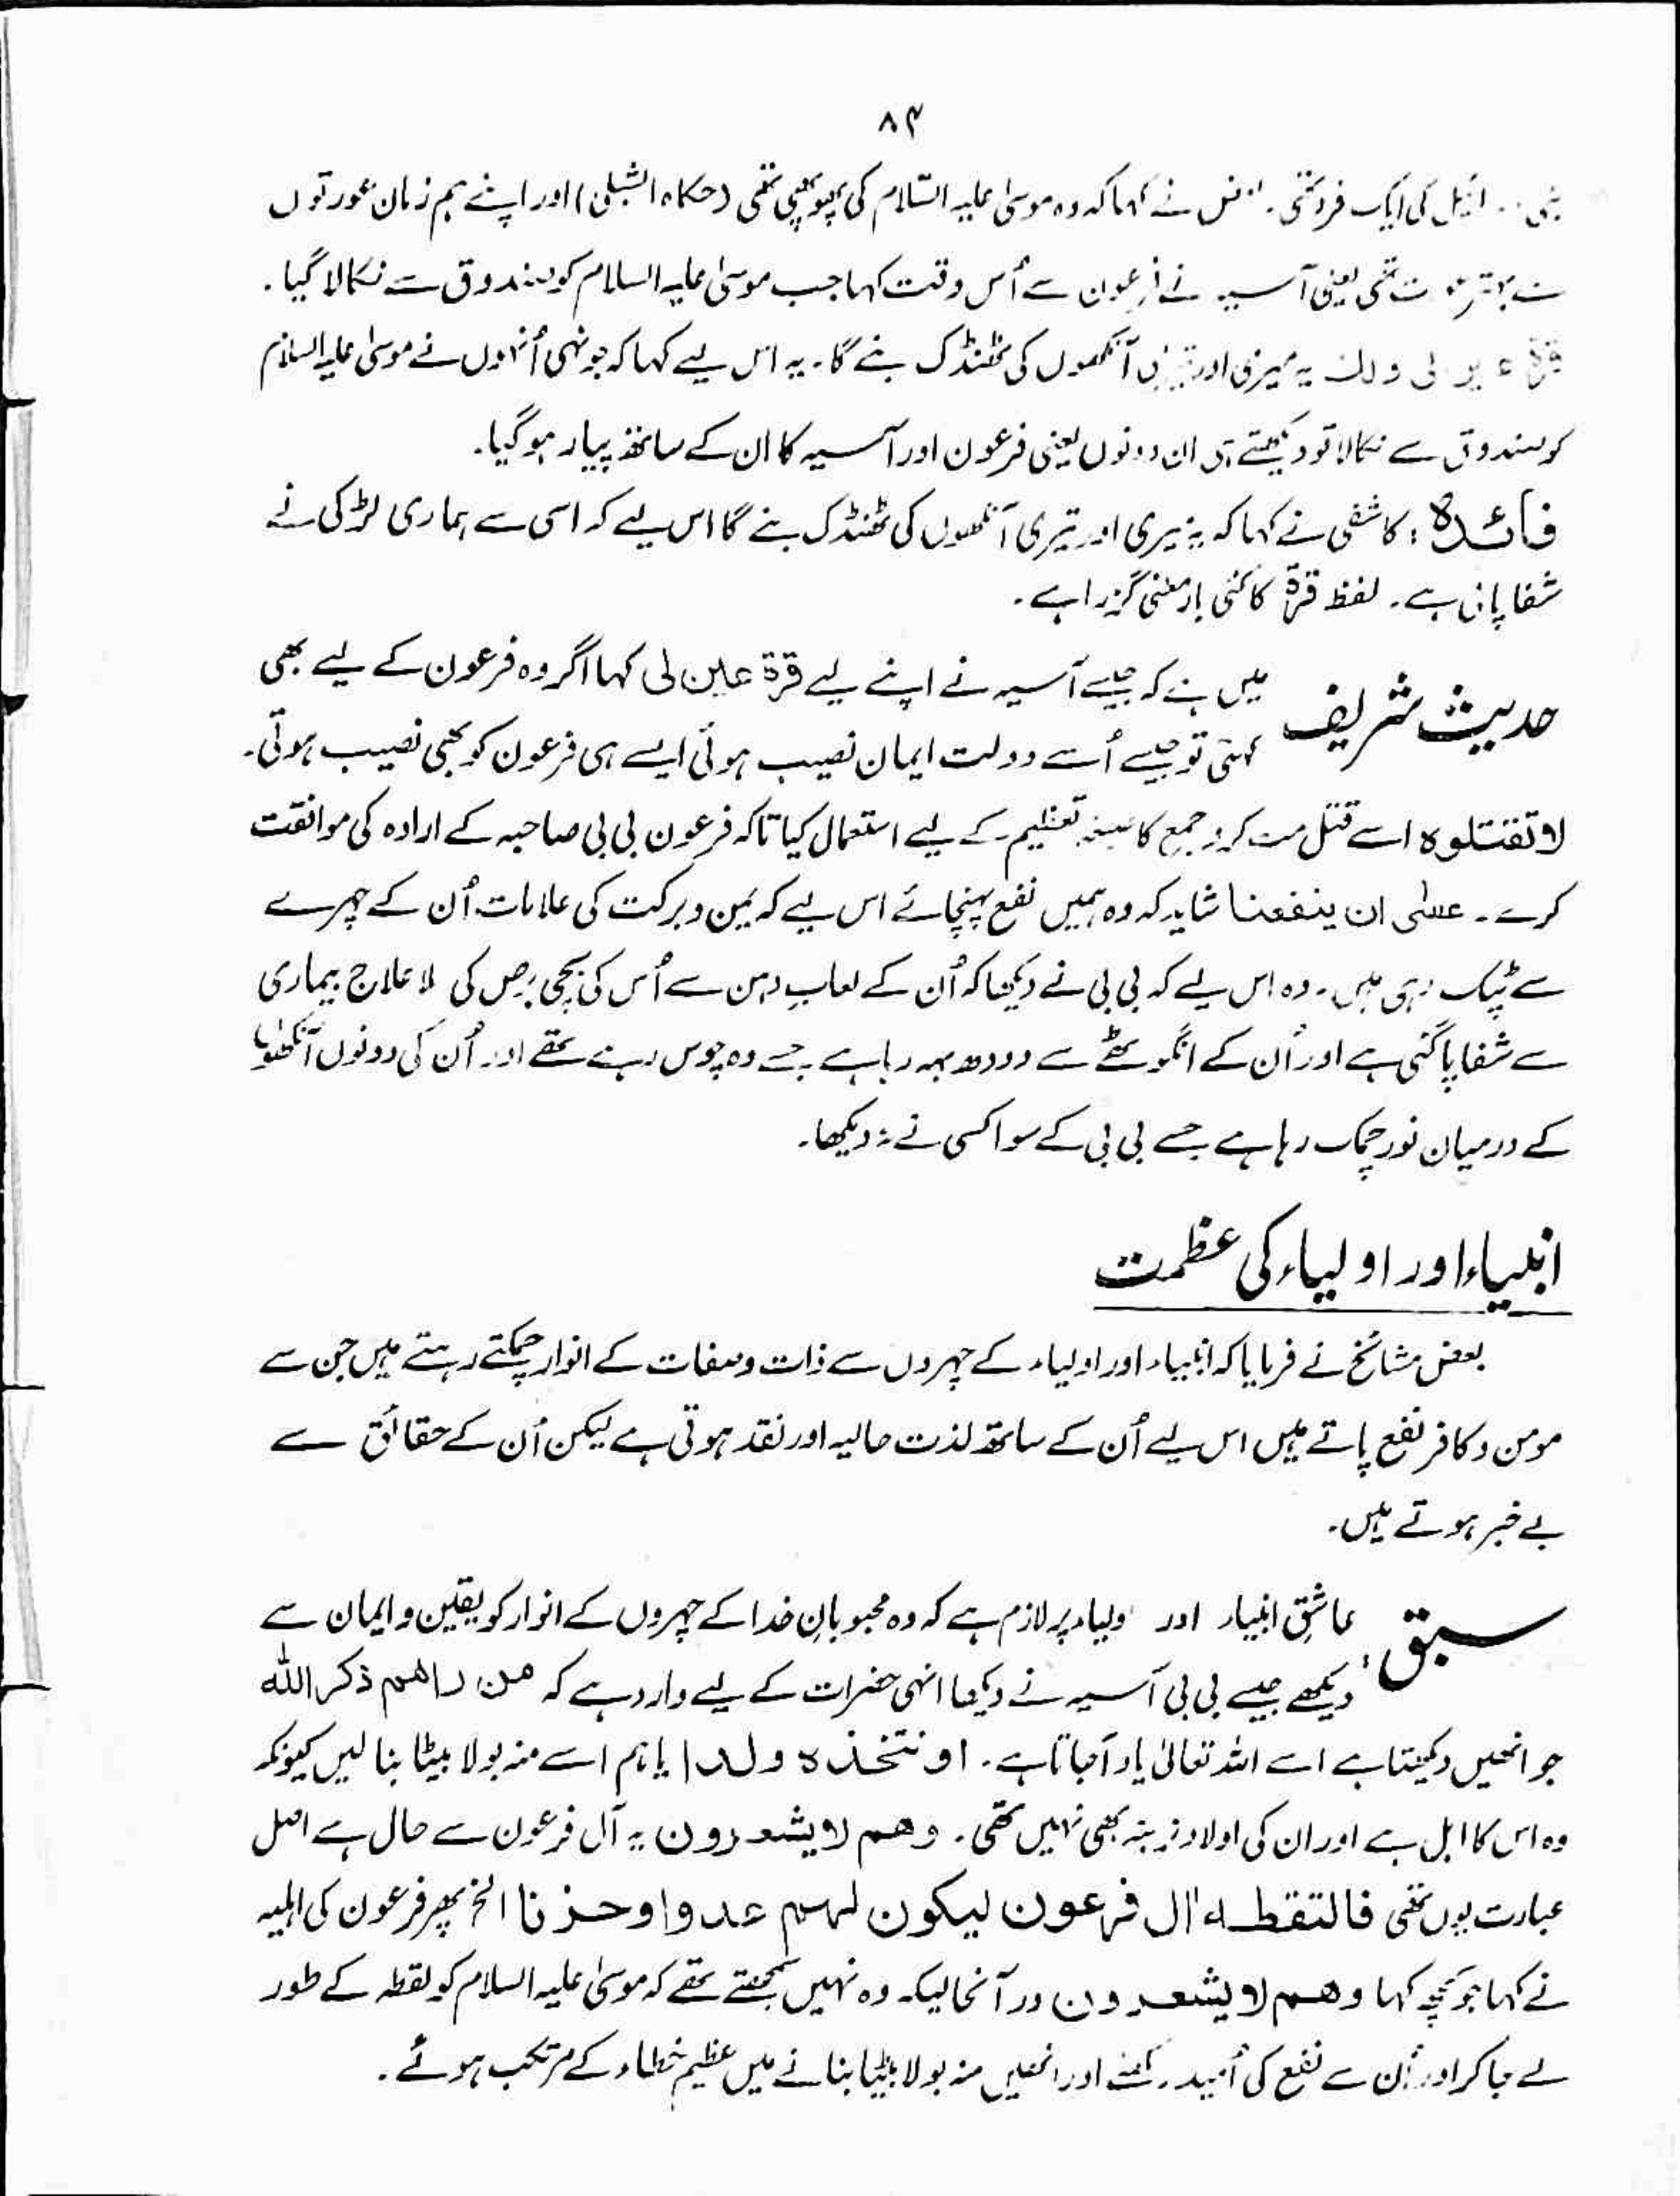 ۸۴
کی ایک فرد تھی۔ بعض نے کہا کہ وہ موسیٰ علیہ السّلام کی پھوپھی تھی (حکاہ الشبلی) اور اپنے ہم زمان عورتوں
تھی یعنی آسیہ نے فرعون سے اُس وقت کہا جب موسیٰ علیہ السلام کو صندوق سے نکالا گیا۔
قرۃ لی ولک یہ میری اور تیری آنکھوں کی ٹھنڈک بنے گا۔ یہ اس لیے کہا کہ جونہی اُنہوں نے موسیٰ علیہ السلام
کو صندوق سے نکالا تو دیکھتے ہی ان دونوں یعنی فرعون اور آسیہ کا ان کے ساتھ پیار ہو گیا۔
فائدہ: کاشفی نے کہا کہ یہ میری اور تیری آنکھوں کی ٹھنڈک بنے گا اس لیے کہ اسی سے ہماری لڑکی نے
شفا پائی ہے۔ لفظ قرۃ کا کئی بار معنی گزرا ہے۔
حدیث شریف میں ہے کہ جیسے آسیہ نے اپنے لیے قرۃ عین لی کہا اگر وہ فرعون کے لیے بھی
کہتی تو جیسے اُسے دولت ایمان نصیب ہوئی ایسے ہی فرعون کو بھی نصیب ہوتی۔
لا تقتلوہ اسے قتل مت کرو جمع کا صیغہ تعظیم کے لیے استعمال کیا تاکہ فرعون بی بی صاحبہ کے ارادہ کی موافقت
کرے۔ عسٰی ان ینفعنا شاید کہ وہ ہمیں نفع پہنچائے اس لیے کہ یمن و برکت کی علامات اُن کے چہرے
سے ٹپک رہی ہیں۔ وہ اس لیے کہ بی بی نے دیکھا کہ اُن کے لعاب دہن سے اُس کی بچی برص کی لا علاج بیماری
سے شفا پا گئی ہے اور اُن کے انگوٹھے سے دودھ بہہ رہا ہے جسے وہ چوس رہے تھے اور اُن کی دونوں آنکھوں
کے درمیان نور چمک رہا ہے جسے بی بی کے سوا کسی نے نہ دیکھا۔
انبیاء اور اولیاء کی عظمت
بعض مشائخ نے فرمایا کہ انبیاء اور اولیاء کے چہروں سے ذات وصفات کے انوار چمکتے رہتے ہیں جن سے
مومن و کافر نفع پاتے ہیں اس لیے اُن کے ساتھ لذت حالیہ اور نقد ہوتی ہے لیکن اُن کے حقائق سے
بے خبر ہوتے ہیں۔
سبق: عاشقِ انبیاء اور اولیاء پر لازم ہے کہ وہ محبوبانِ خدا کے چہروں کے انوار کو یقین و ایمان سے
دیکھے جیسے بی بی آسیہ نے دیکھا انہی حضرات کے لیے وارد ہے کہ من راھم ذکر اللہ
جو انھیں دیکھتا ہے اسے اللہ تعالیٰ یاد آجاتا ہے۔ او نتخذہ ولدا یا ہم اسے منہ بولا بیٹا بنا لیں کیونکہ
وہ اس کا اہل ہے اور ان کی اولاد نرینہ بھی نہیں تھی۔ وھم لا یشعرون یہ آل فرعون سے حال ہے اصل
عبارت یوں تھی فالتقطہ اٰل فرعون لیکون لھم عدوا وحزنا الخ پھر فرعون کی اہلیہ
نے کہا جو کچھ کہا وھم لا یشعرون درآنحالیکہ وہ نہیں سمجھتے تھے کہ موسیٰ علیہ السلام کو لقطہ کے طور
لے جا کر اور اُن سے نفع کی اُمید رکھنے اور انھیں منہ بولا بیٹا بنانے میں عظیم خطاء کے مرتکب ہوئے۔